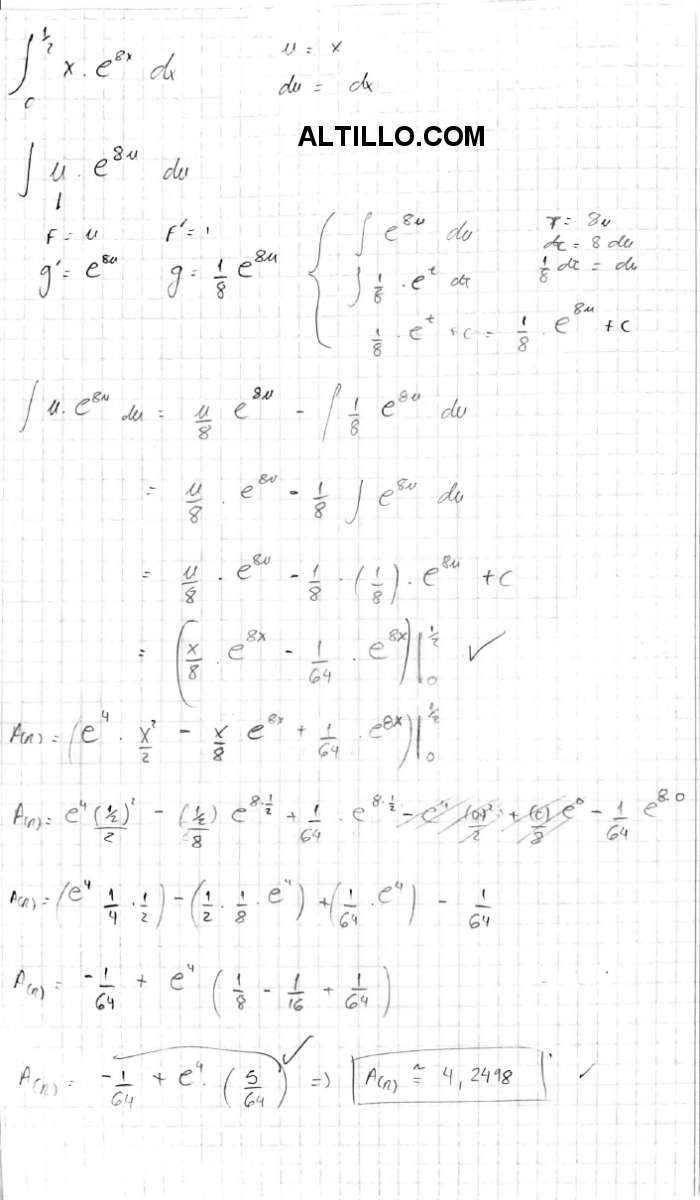 ∫₀^{1/2} x · e^{8x} dx
u = x
du = dx
ALTILLO.COM
∫ u · e^{8u} du
F = u F' = 1
g' = e^{8u} g = 1/8 e^{8u}
∫ e^{8u} du
∫ 1/8 · e^t dt
1/8 · e^t + c = 1/8 · e^{8u} + c
t = 8u
dt = 8 du
1/8 dt = du
∫ u · e^{8u} du = u/8 e^{8u} - ∫ 1/8 e^{8u} du
= u/8 · e^{8u} - 1/8 ∫ e^{8u} du
= u/8 · e^{8u} - 1/8 · (1/8) · e^{8u} + c
= (x/8 · e^{8x} - 1/64 · e^{8x}) |₀^{1/2} ✓
A(n) = (e^4 · x²/2 - x/8 · e^{8x} + 1/64 · e^{8x}) |₀^{1/2}
A(n) = e^4 (1/2)²/2 - (1/2)/8 e^{8·1/2} + 1/64 · e^{8·1/2} - e^4 (0)²/2 + (0)/8 e^0 - 1/64 e^{8·0}
A(n) = (e^4 1/4 · 1/2) - (1/2 · 1/8 · e^4) + (1/64 · e^4) - 1/64
A(n) = -1/64 + e^4 (1/8 - 1/16 + 1/64)
A(n) = -1/64 + e^4 · (5/64) ✓ => A(n) ≅ 4,2498 ✓